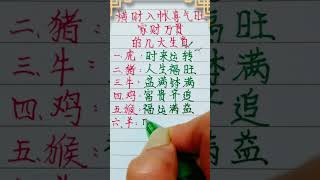 横财入帐喜气旺
富财万贯
的几大生肖
一、虎：时来运转
二、猪：人生福旺
三、牛：盆满钵满
四、鸡：富贵齐追
五、猴：福运满益
六、羊：
二、猪
三、牛
四、鸡
五、猴
转
旺
满
追
益